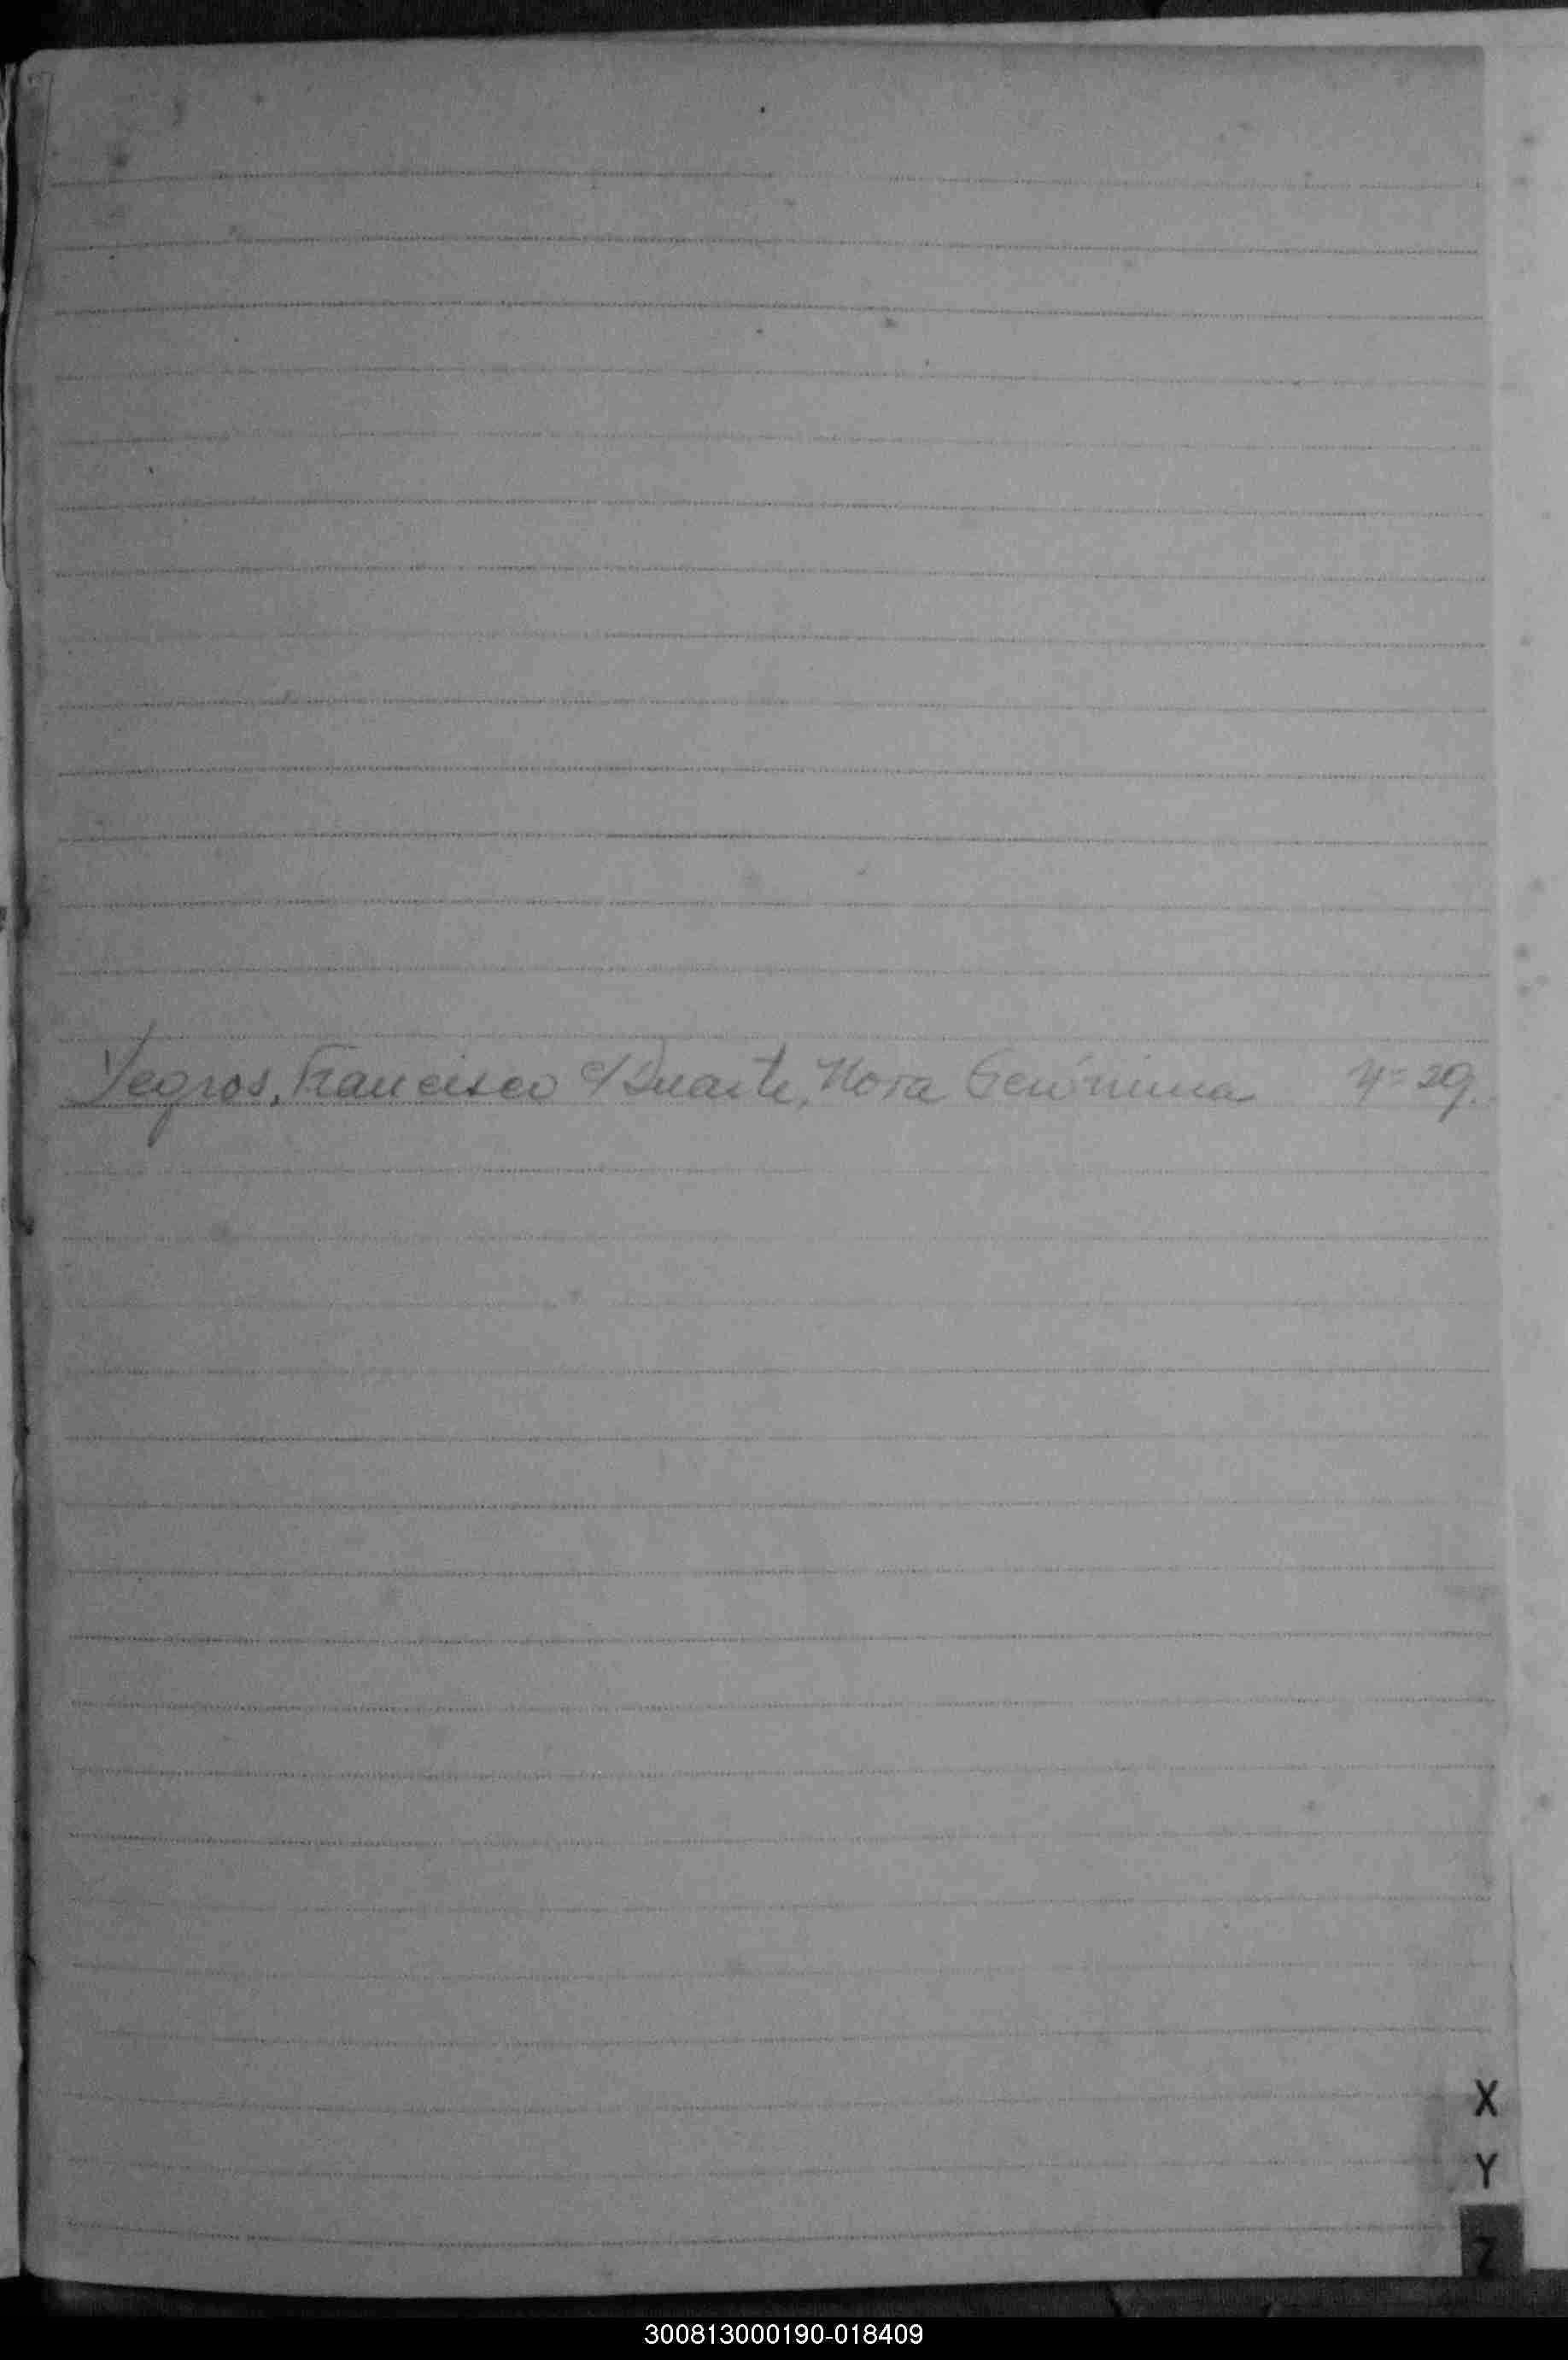 Yegros, Francisco c/ Duarte, Nora Gerónima 4=29.
X
Y
Z
300813000190-018409